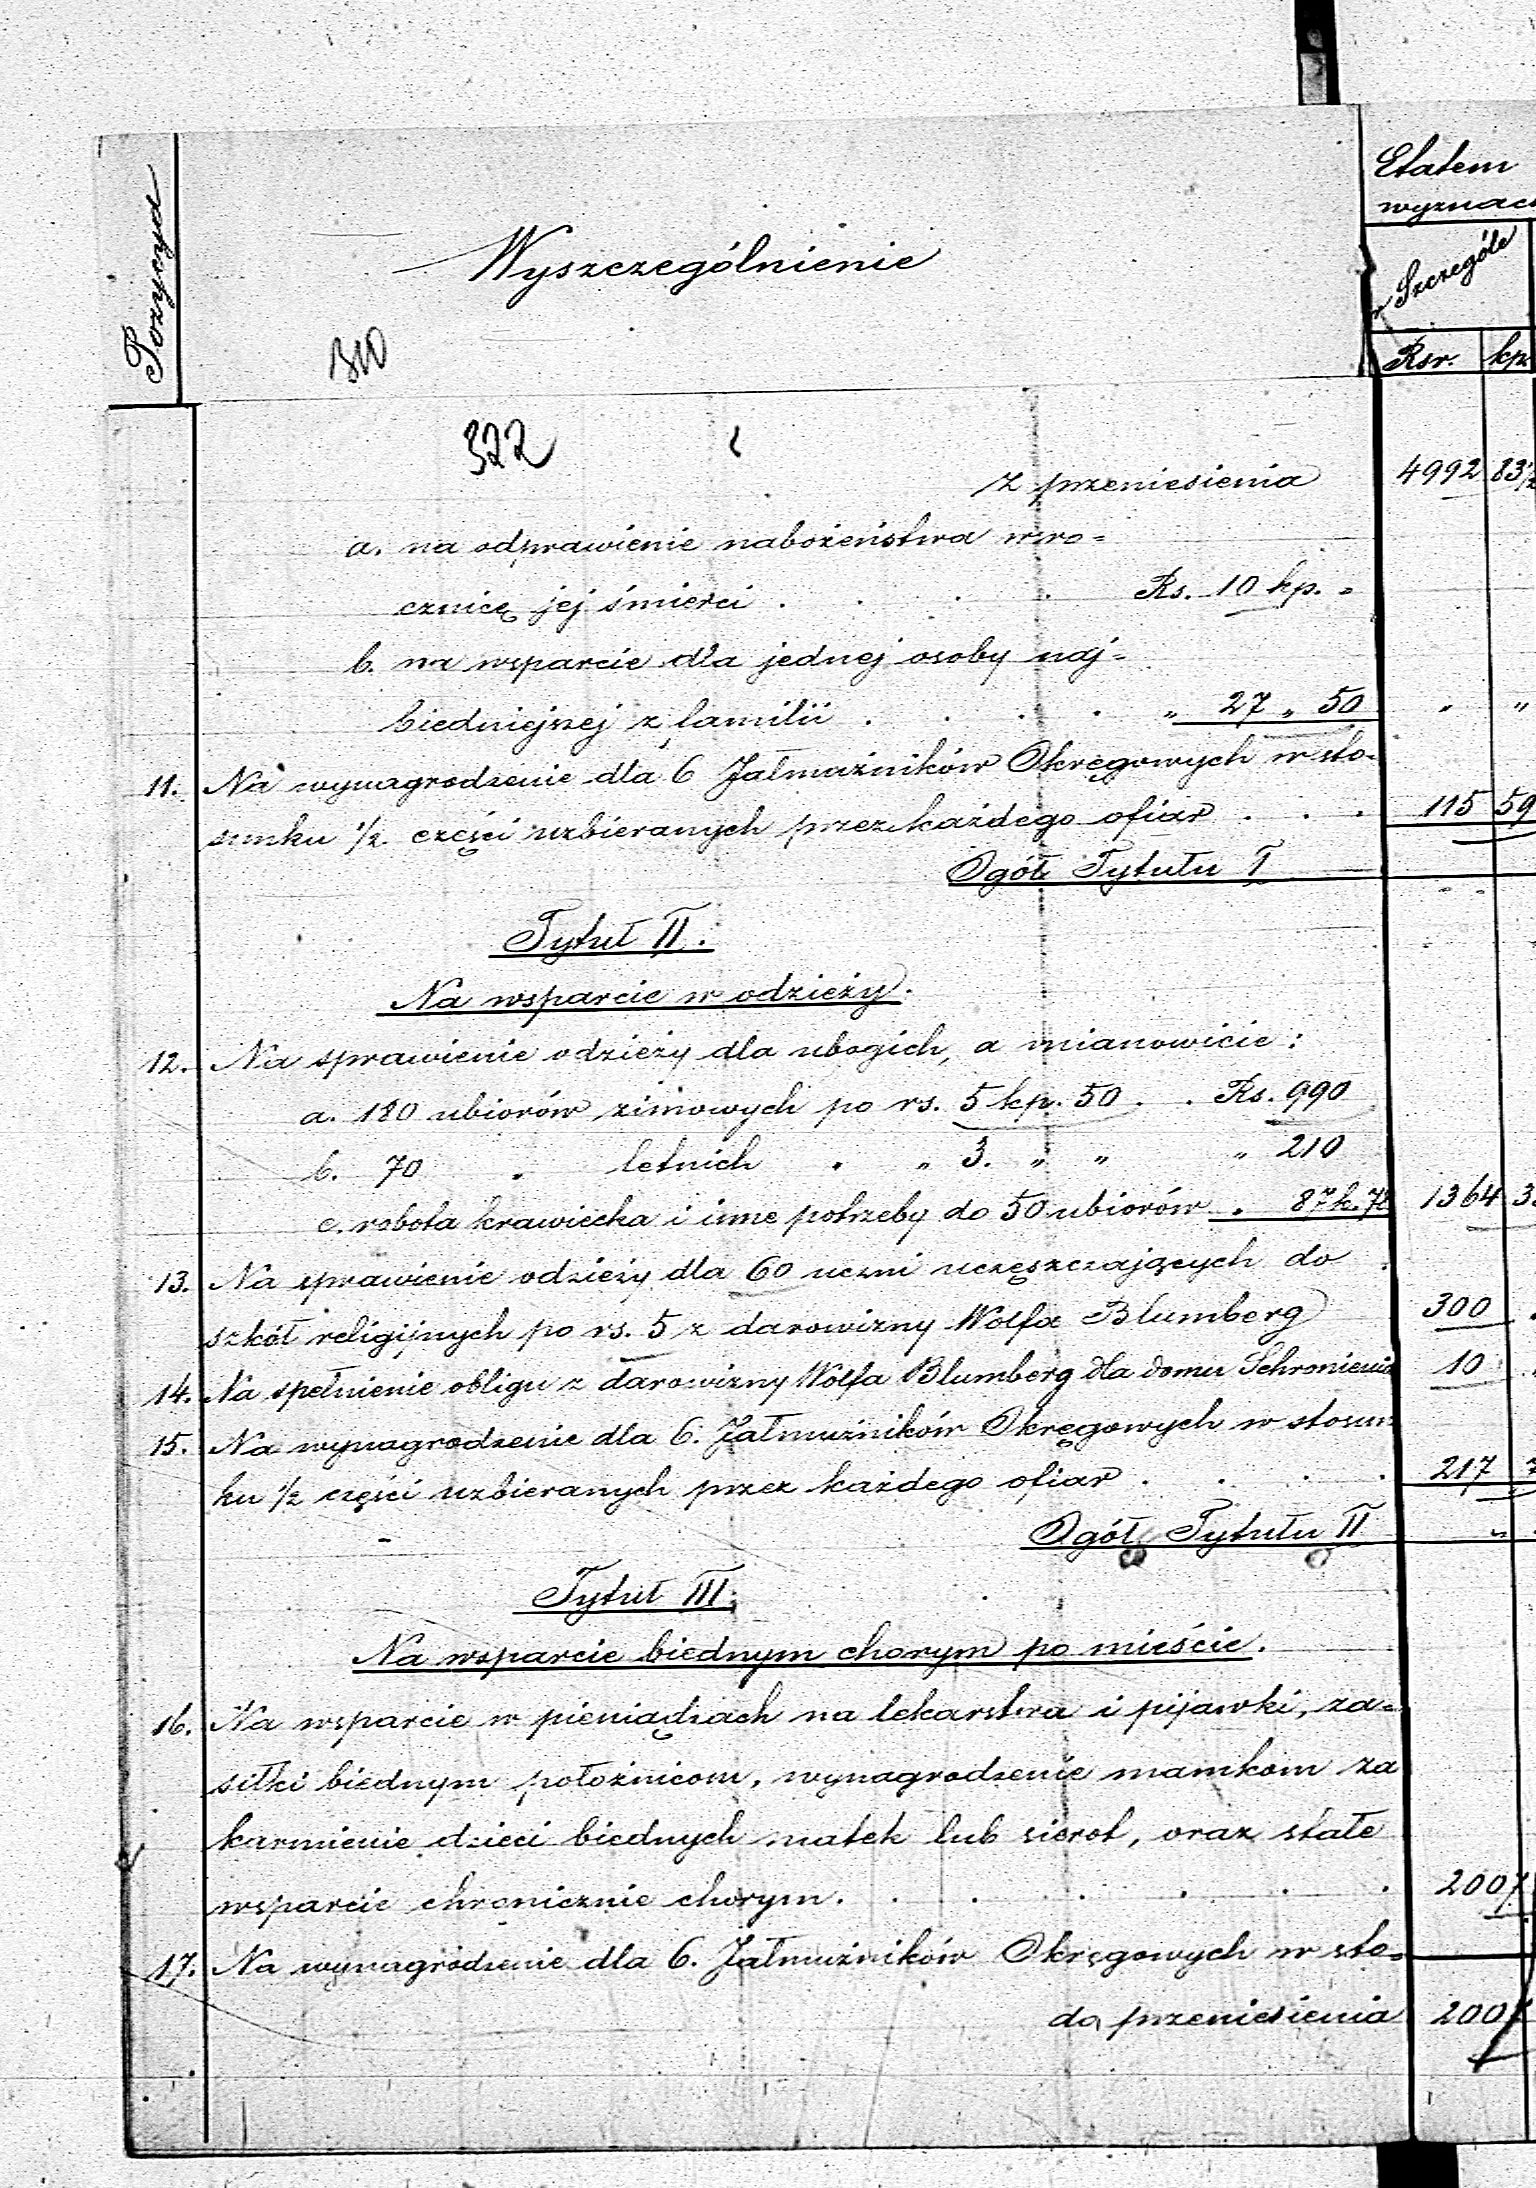 Pozycya
Wyszczególnienie
Etatem
wyznac
Szczególe
Rsr. kp.
310
322
z przeniesienia 4992 83 1/2
a. na odprawienie nabożeństwa w ro=
cznicę jej śmierci . . . . Rs. 10 kp. "
b. na wsparcie dla jednej osoby naj=
biedniejszej z familii . . . . " 27 " 50 " "
11. Na wynagrodzenie dla 6 Jałmużników Okręgowych w sto=
sunku 1/2 części uzbieranych przez każdego ofiar . . . 115 59
Ogół Tytułu I
Tytuł II.
Na wsparcie w odzieży.
12. Na sprawienie odzieży dla ubogich, a mianowicie:
a. 180 ubiorów zimowych po rs. 5 kp. 50 . . Rs. 990
b. 70 " letnich " " 3. " " " 210
c. robota krawiecka i inne potrzeby do 50 ubiorów " 87 k. 1364 3
13. Na sprawienie odzieży dla 60 uczni uczęszczających do
szkół religijnych po rs. 5 z darowizny Wolfa Blumberg 300
14. Na spełnienie obligu z darowizny Wolfa Blumberg dla domu Schronienia 10
15. Na wynagrodzenie dla 6. Jałmużników Okręgowych w stosun
ku 1/2 części uzbieranych przez każdego ofiar . . . . 217 7
Ogół Tytułu II "
Tytuł III.
Na wsparcie biednym chorym po mieście.
16. Na wsparcie w pieniądzach na lekarstwa i pijawki, za=
siłki biednym położnicom, wynagrodzenie mamkom za
karmienie dzieci biednych matek lub sierot, oraz stałe
wsparcie chronicznie chorym. . . . . . 2007
17. Na wynagrodzenie dla 6. Jałmużników Okręgowych w sto=
do przeniesienia 2007